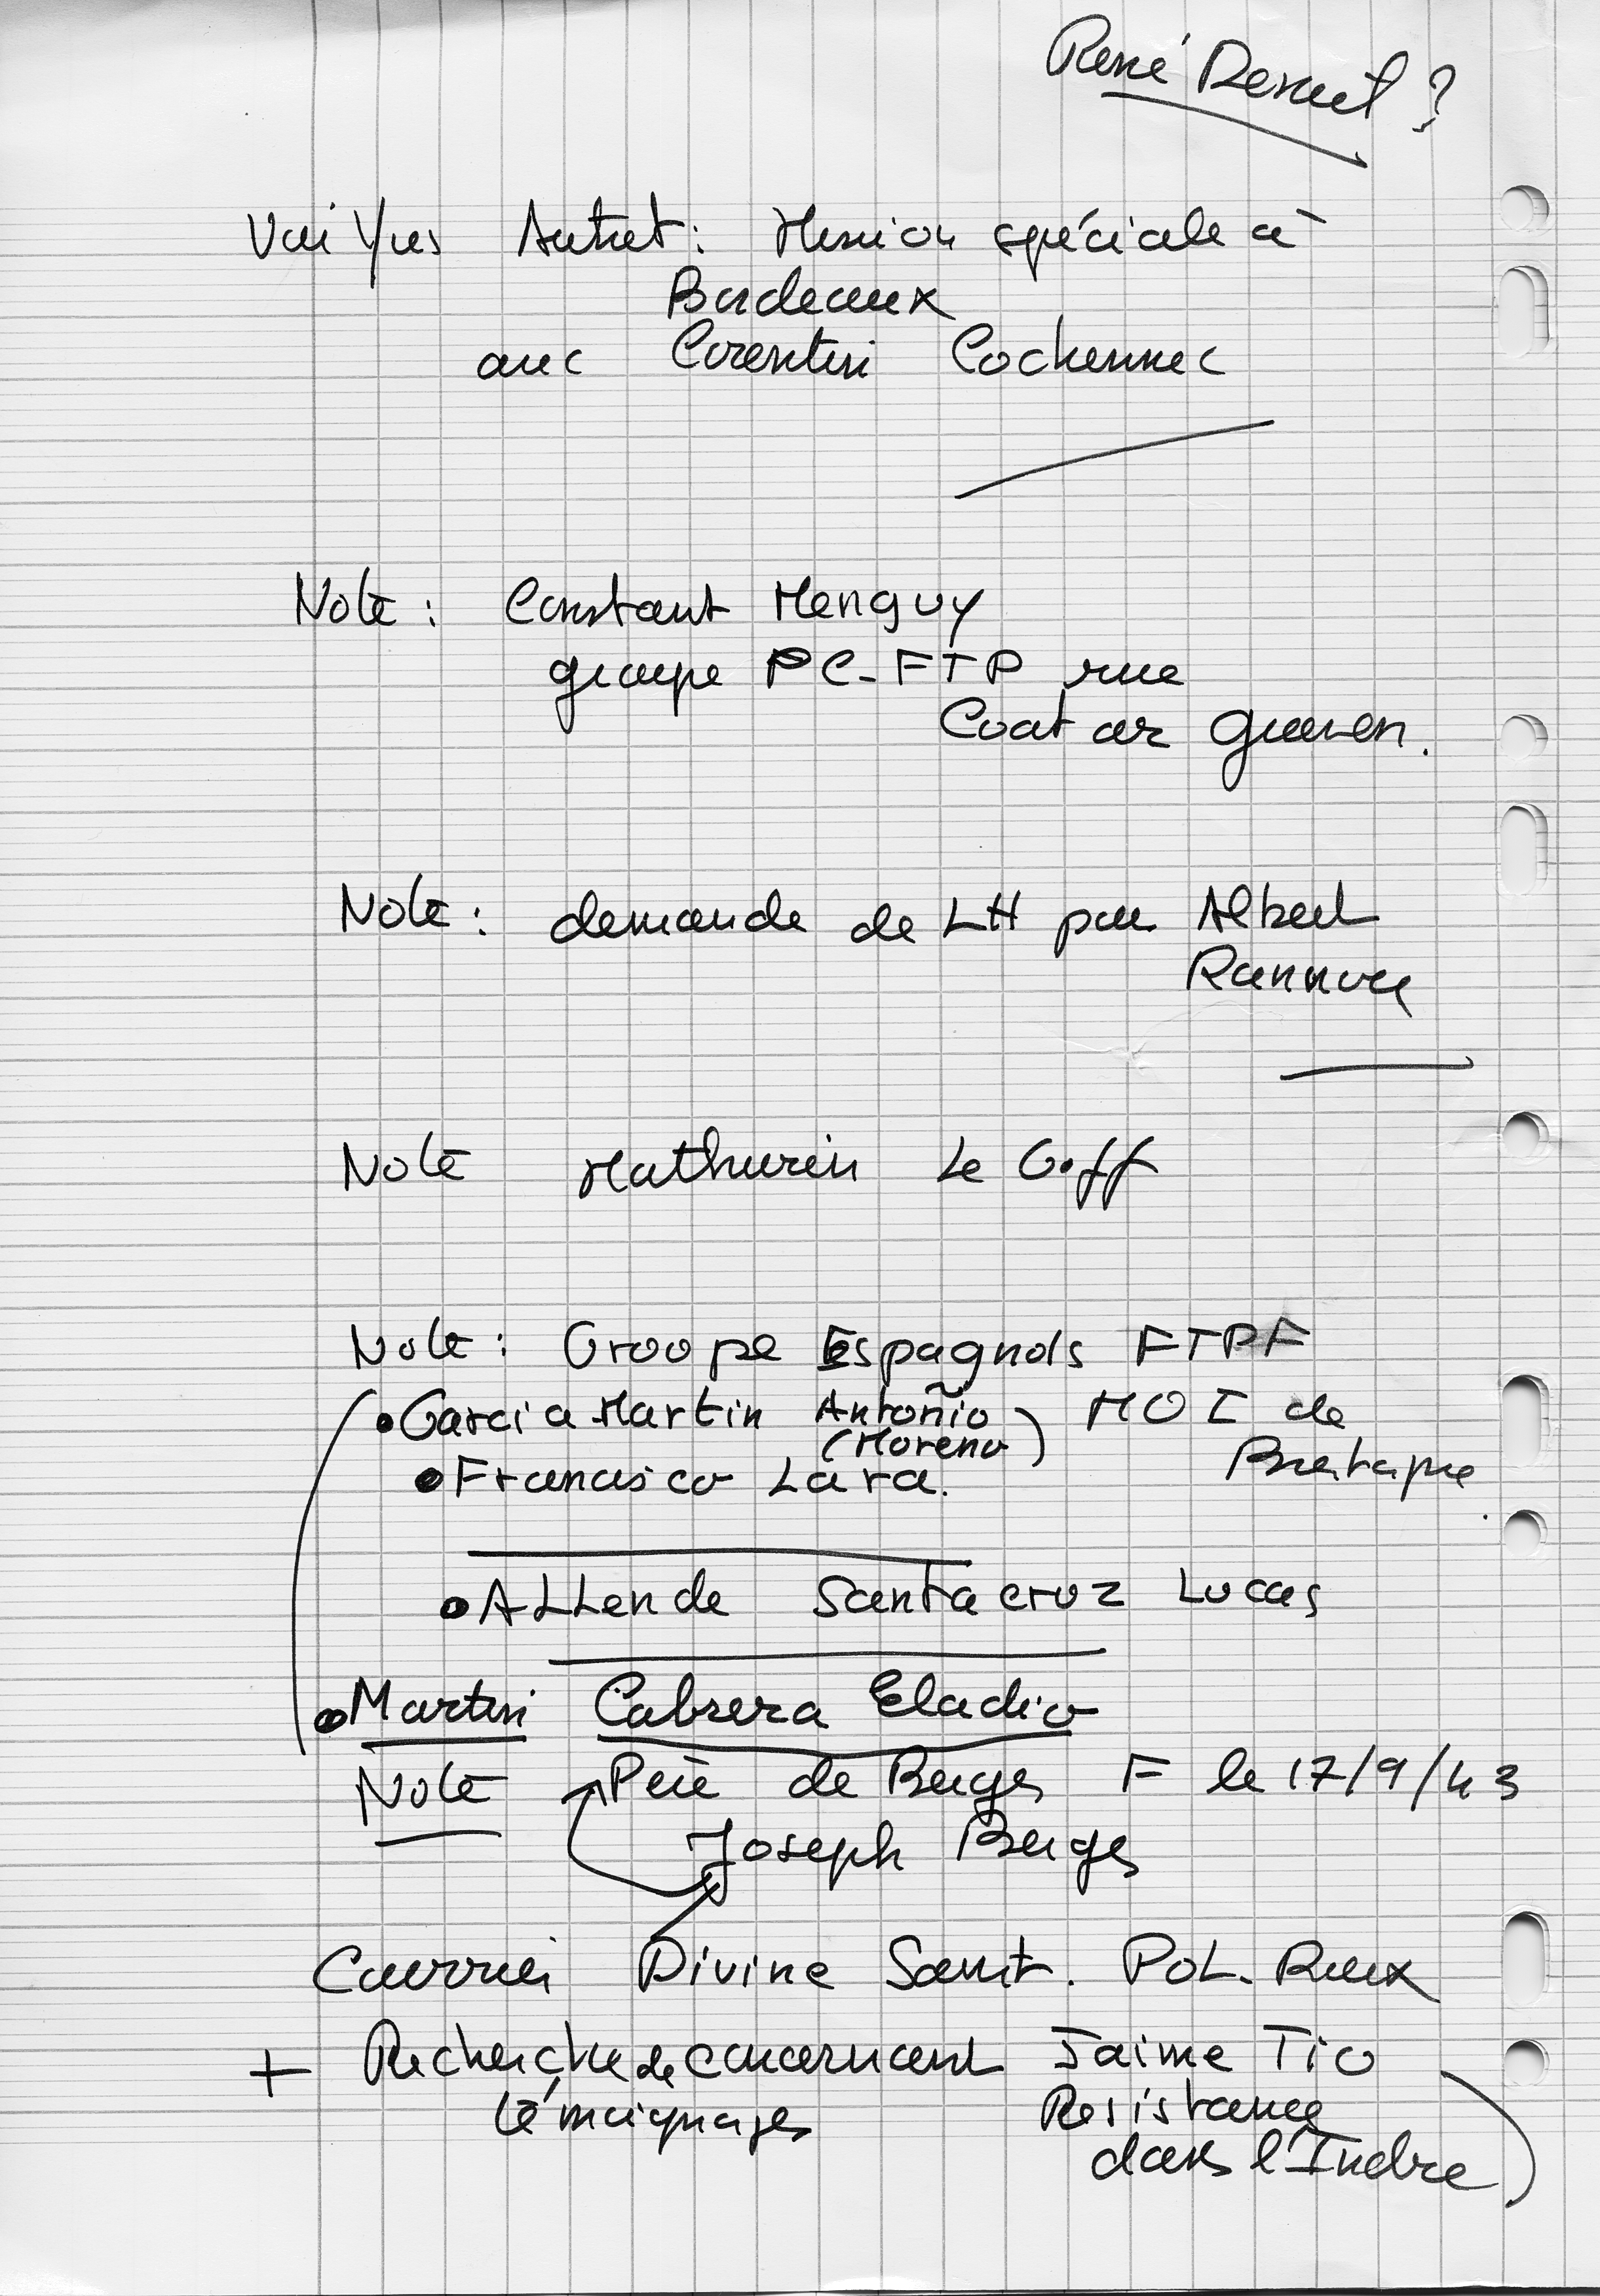 René ?
Voir Yves Autret : Mission spéciale à
Bordeaux
avec Corentin Cochennec
Note : Constant Menguy
groupe PC-FTP rue
Coat ar Gueven.
Note : demande de LH par Albert
Rannou
Note Mathurin Le Goff
Note : Groupe Espagnols FTPF
• Garcia Martin Antoñio MOI de
(Moreno) Bretagne
• Francisco Lara.
• ALLende Santacruz Lucas
• Martin Cabrera Eladio
Note Père de Berges F le 17/9/43
Joseph Berges
Courrier Divine Saint. POL. Roux
+ Recherche de concernant Jaime Tio
témoignages Resistance
dans l'Indre)